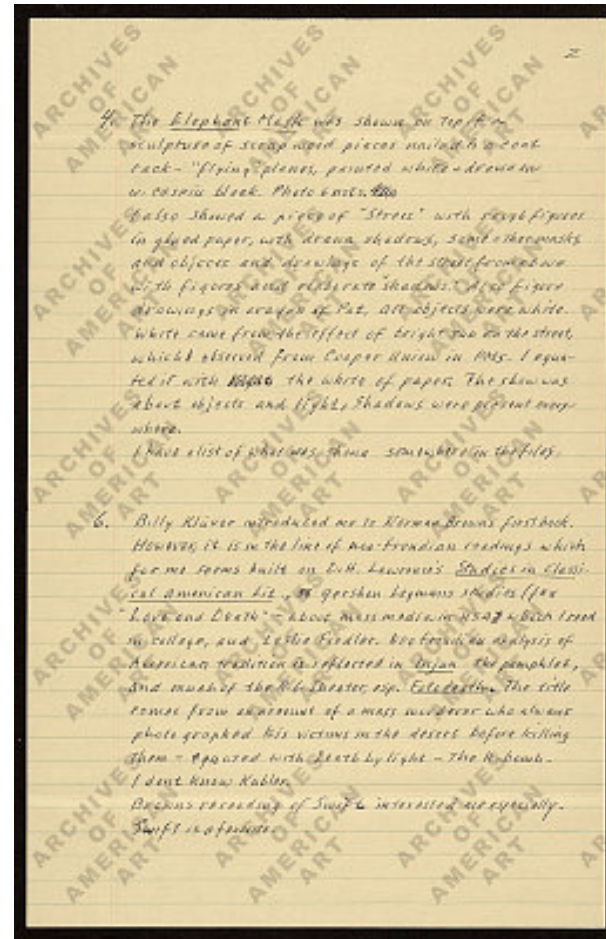 2
4. The Elephant Mask was shown on top of a
sculpture of scrap wood pieces nailed to a coat
rack - "flying" planes, painted white + drawn on
w. casein black. Photo exists.
I also showed a piece of "Street" with rough figures
in glued paper, with drawn shadows, some other masks
and objects and drawings of the street from above
with figures and elaborate "shadows." Also figure
drawings in crayon of Pat. All objects were white.
White came from the effect of bright sun on the street,
which I observed from Cooper Union in 1985. I equa-
ted it with the white of paper. The show was
about objects and light. Shadows were present every-
where.
I have a list of what was shown somewhere in the files.
6. Billy Klüver introduced me to Norman Browns first book.
However, it is in the line of neo-freudian readings which
for me seems built on D.H. Lawrence's Studies in Classi-
cal American Lit., Gershon Legmans studies (for
"Love and Death" - about mass media in USA) which I read
in college, and Leslie Fiedler. Neo freudian analysis of
American tradition is reflected in Injun the pamphlet,
and much of the R.G. theater, esp. Fotodeath. The title
comes from an account of a mass murderer who always
photographed his victims in the desert before killing
them - equated with Death by light - The A-bomb.
I dont know Kubler.
Browns rereading of Swift interested me especially.
Swift is a favorite.
ARCHIVES
OF
AMERICAN
ART